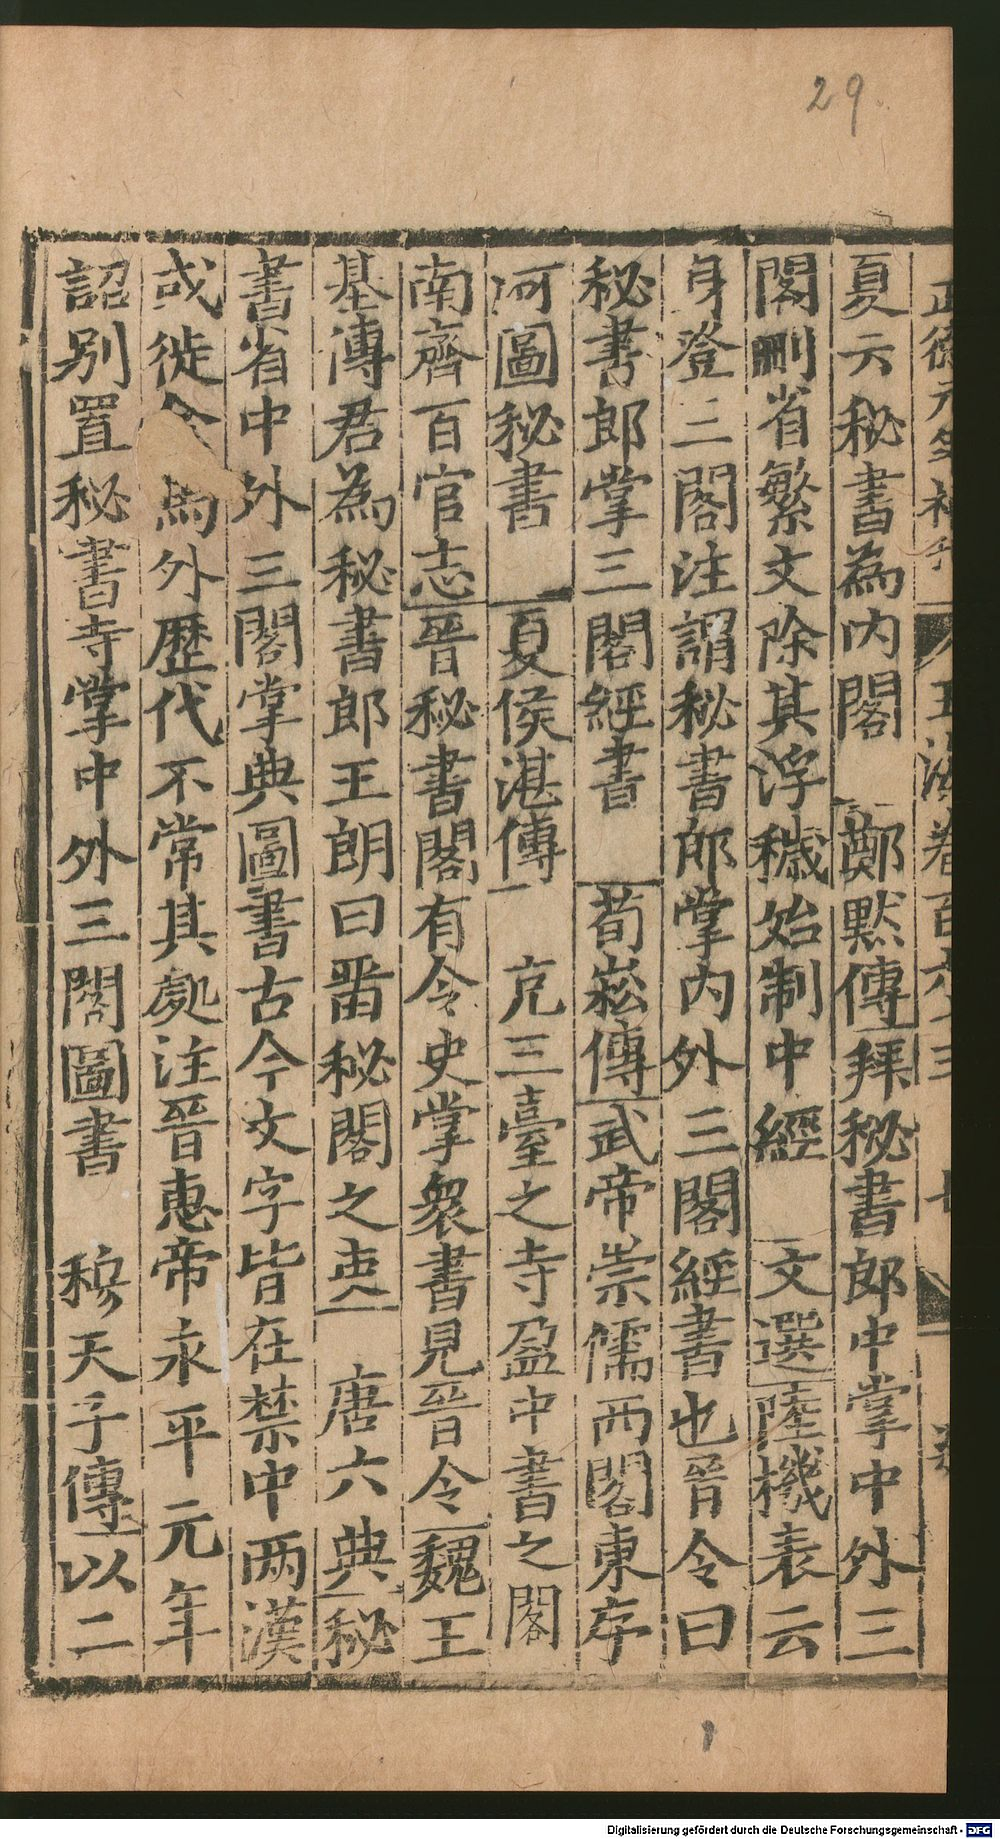 29
正德元年補刊
玉海卷百六十三 七
夏云秘書為内閣 鄭黙傳拜秘書郎中掌中外三
閣刪省繁文除其浮穢始制中經 文選陸機表云
身登三閣注謂秘書郎掌内外三閣經書也晉令曰
秘書郎掌三閣經書 荀崧傳武帝崇儒西閣東序
河圖秘書 夏侯湛傳 三臺之寺盈中書之閣
南齊百官志晉秘書閣有令史掌衆書見晉令魏王
基傳君為秘書郎王朗曰畱秘閣之吏 唐六典秘
書省中外三閣掌典圖書古今文字皆在禁中两漢
或徙 外歷代不常其處注晉惠帝永平元年
詔别置秘書寺掌中外三閣圖書 穆天子傳以二
1
Digitalisierung gefördert durch die Deutsche Forschungsgemeinschaft - DFG